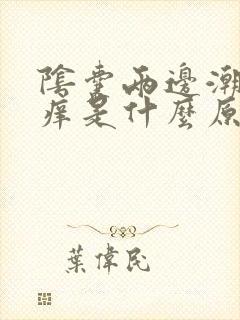 陰囊兩邊潮
癢是什麼原
葉偉民